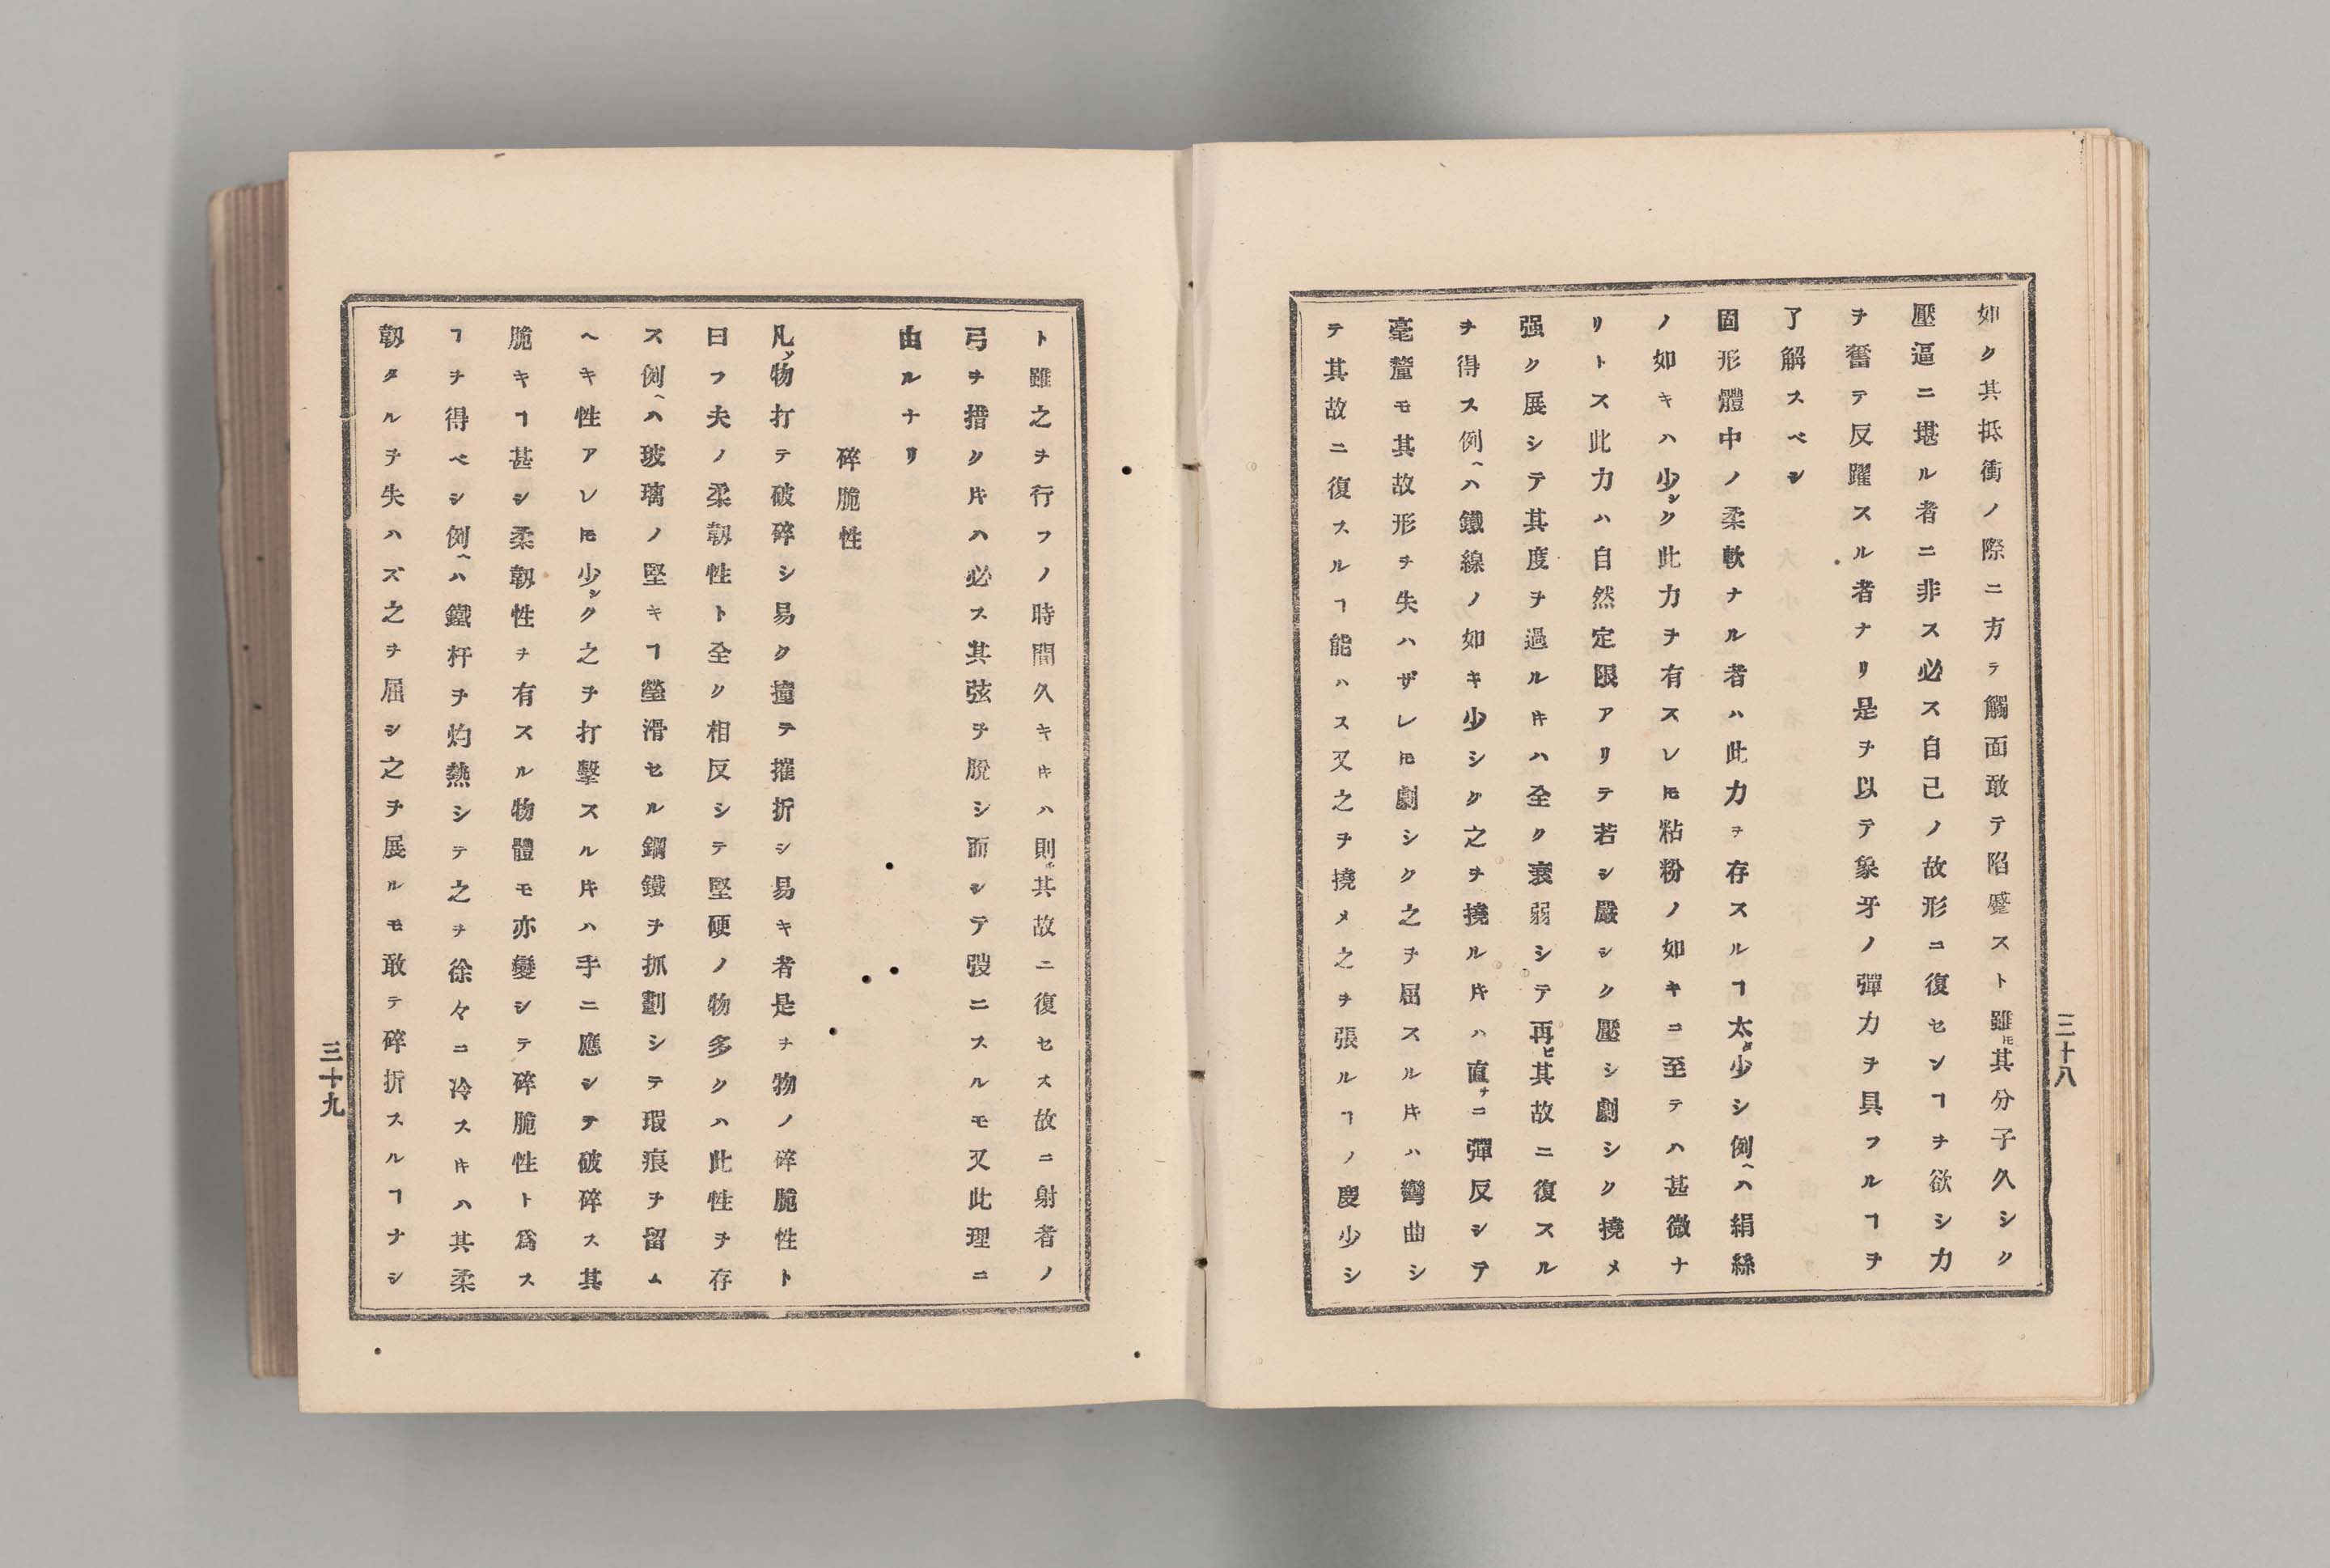 如ク其抵衝ノ際ニ方テ觸面敢テ陷蹙スト雖𪜈其分子久シク
壓逼ニ堪ル者ニ非ス必ス自己ノ故形ニ復センヿヲ欲シ力
ヲ奮テ反躍スル者ナリ是ヲ以テ象牙ノ彈力ヲ具フルヿヲ
了解スベシ
固形體中ノ柔軟ナル者ハ此力ヲ存スルヿ太タ少シ例ヘハ絹絲
ノ如キハ少シク此力ヲ有スレ𪜈粘粉ノ如キニ至テハ甚微ナ
リトス此力ハ自然定限アリテ若シ嚴シク壓シ劇シク撓メ
强ク展シテ其度ヲ過ルキハ全ク衰弱シテ再ヒ其故ニ復スル
ヲ得ス例ヘハ鐵線ノ如キ少シク之ヲ撓ル片ハ直チニ彈反シテ
毫釐モ其故形ヲ失ハザレ𪜈劇シク之ヲ屈スル片ハ彎曲シ
テ其故ニ復スルヿ能ハス又之ヲ撓メ之ヲ張ルヿノ慶少シ
三十八
ト雖之ヲ行フノ時間久キキハ則チ其故ニ復セス故ニ射者ノ
弓ヲ措ク片ハ必ス其弦ヲ脫シ而シテ弢ニスルモ又此理ニ
由ルナリ
碎脆性
凡ソ物打テ破碎シ易ク撞テ摧折シ易キ者是ヲ物ノ碎脆性ト
曰フ夫ノ柔韌性ト全ク相反シテ堅硬ノ物多クハ此性ヲ存
ス例ヘハ玻璃ノ堅キヿ瑩滑セル鋼鐵ヲ抓劃シテ瑕痕ヲ留ム
ヘキ性アレ𪜈少シク之ヲ打擊スル片ハ手ニ應シテ破碎ス其
脆キヿ甚シ柔韌性ヲ有スル物體モ亦變シテ碎脆性ト爲ス
ヿヲ得ベシ例ヘハ鐵杆ヲ灼熱シテ之ヲ徐々ニ冷スキハ其柔
韌タルヲ失ハズ之ヲ屈シ之ヲ展ルモ敢テ碎折スルヿナシ
三十九